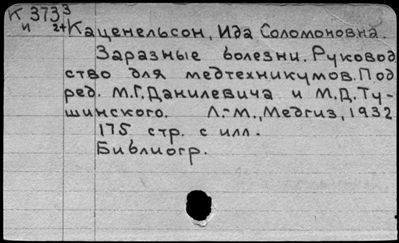 К 3733
и 24 Каценельсон, Ида Соломоновна.
Заразные болезни. Руковод
ство для медтехникумов. Под
ред. М.Г. Данилевича и М.Д. Ту-
шинского. Л.-М., Медгиз, 1932
175 стр. с илл.
Библиогр.